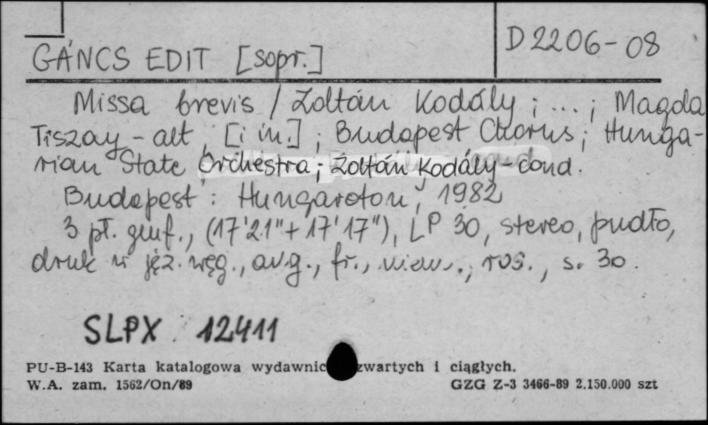 GÁNCS EDIT [sopr.]
D 2206-08
Missa brevis / Zoltán Kodály ; ... ; Magda
Tiszay - alt [i in.] ; Budapest Chorus ; Hunga-
rian State Orchestra ; Zoltán Kodály - cond.
Budapest : Hungaroton, 1982
3 pł. gmf., (17'21"+17'17"), LP 30, stereo, pudło,
druk w jęz. węg., ang., fr., niem., ros., s. 30.
SLPX 12411
PU-B-143 Karta katalogowa wydawnic zwartych i ciągłych.
W.A. zam. 1562/On/89
GZG Z-3 3466-89 2.150.000 szt